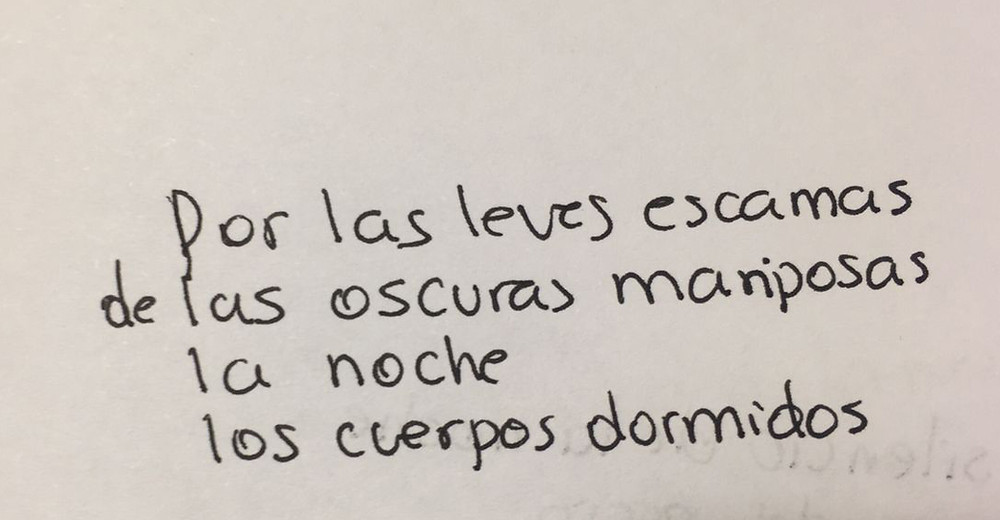 Por las leves escamas
de las oscuras mariposas
la noche
los cuerpos dormidos